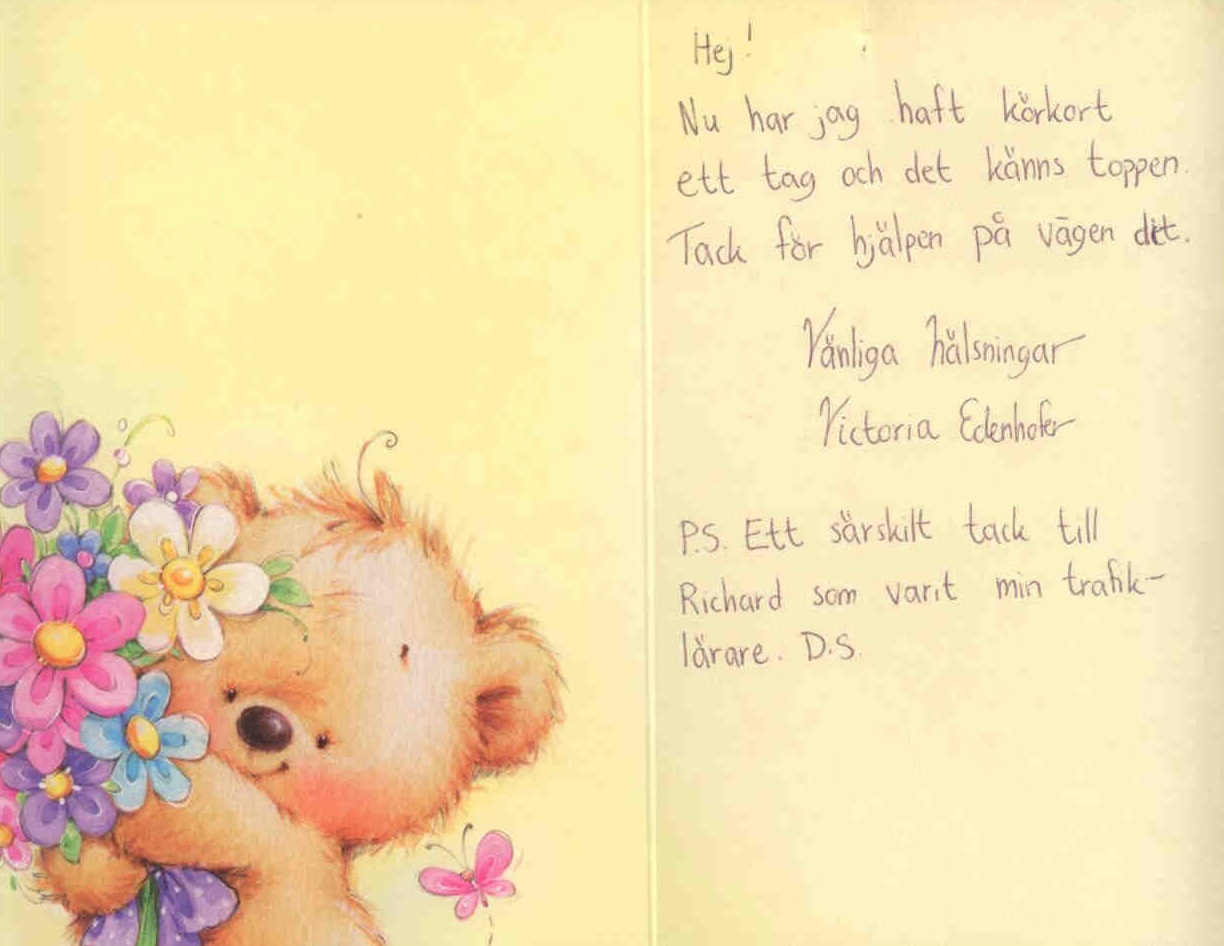 Hej!
Nu har jag haft körkort
ett tag och det känns toppen.
Tack för hjälpen på vägen dit.
Vänliga hälsningar
Victoria Edenhofer
P.S. Ett särskilt tack till
Richard som varit min trafik-
lärare. D.S.